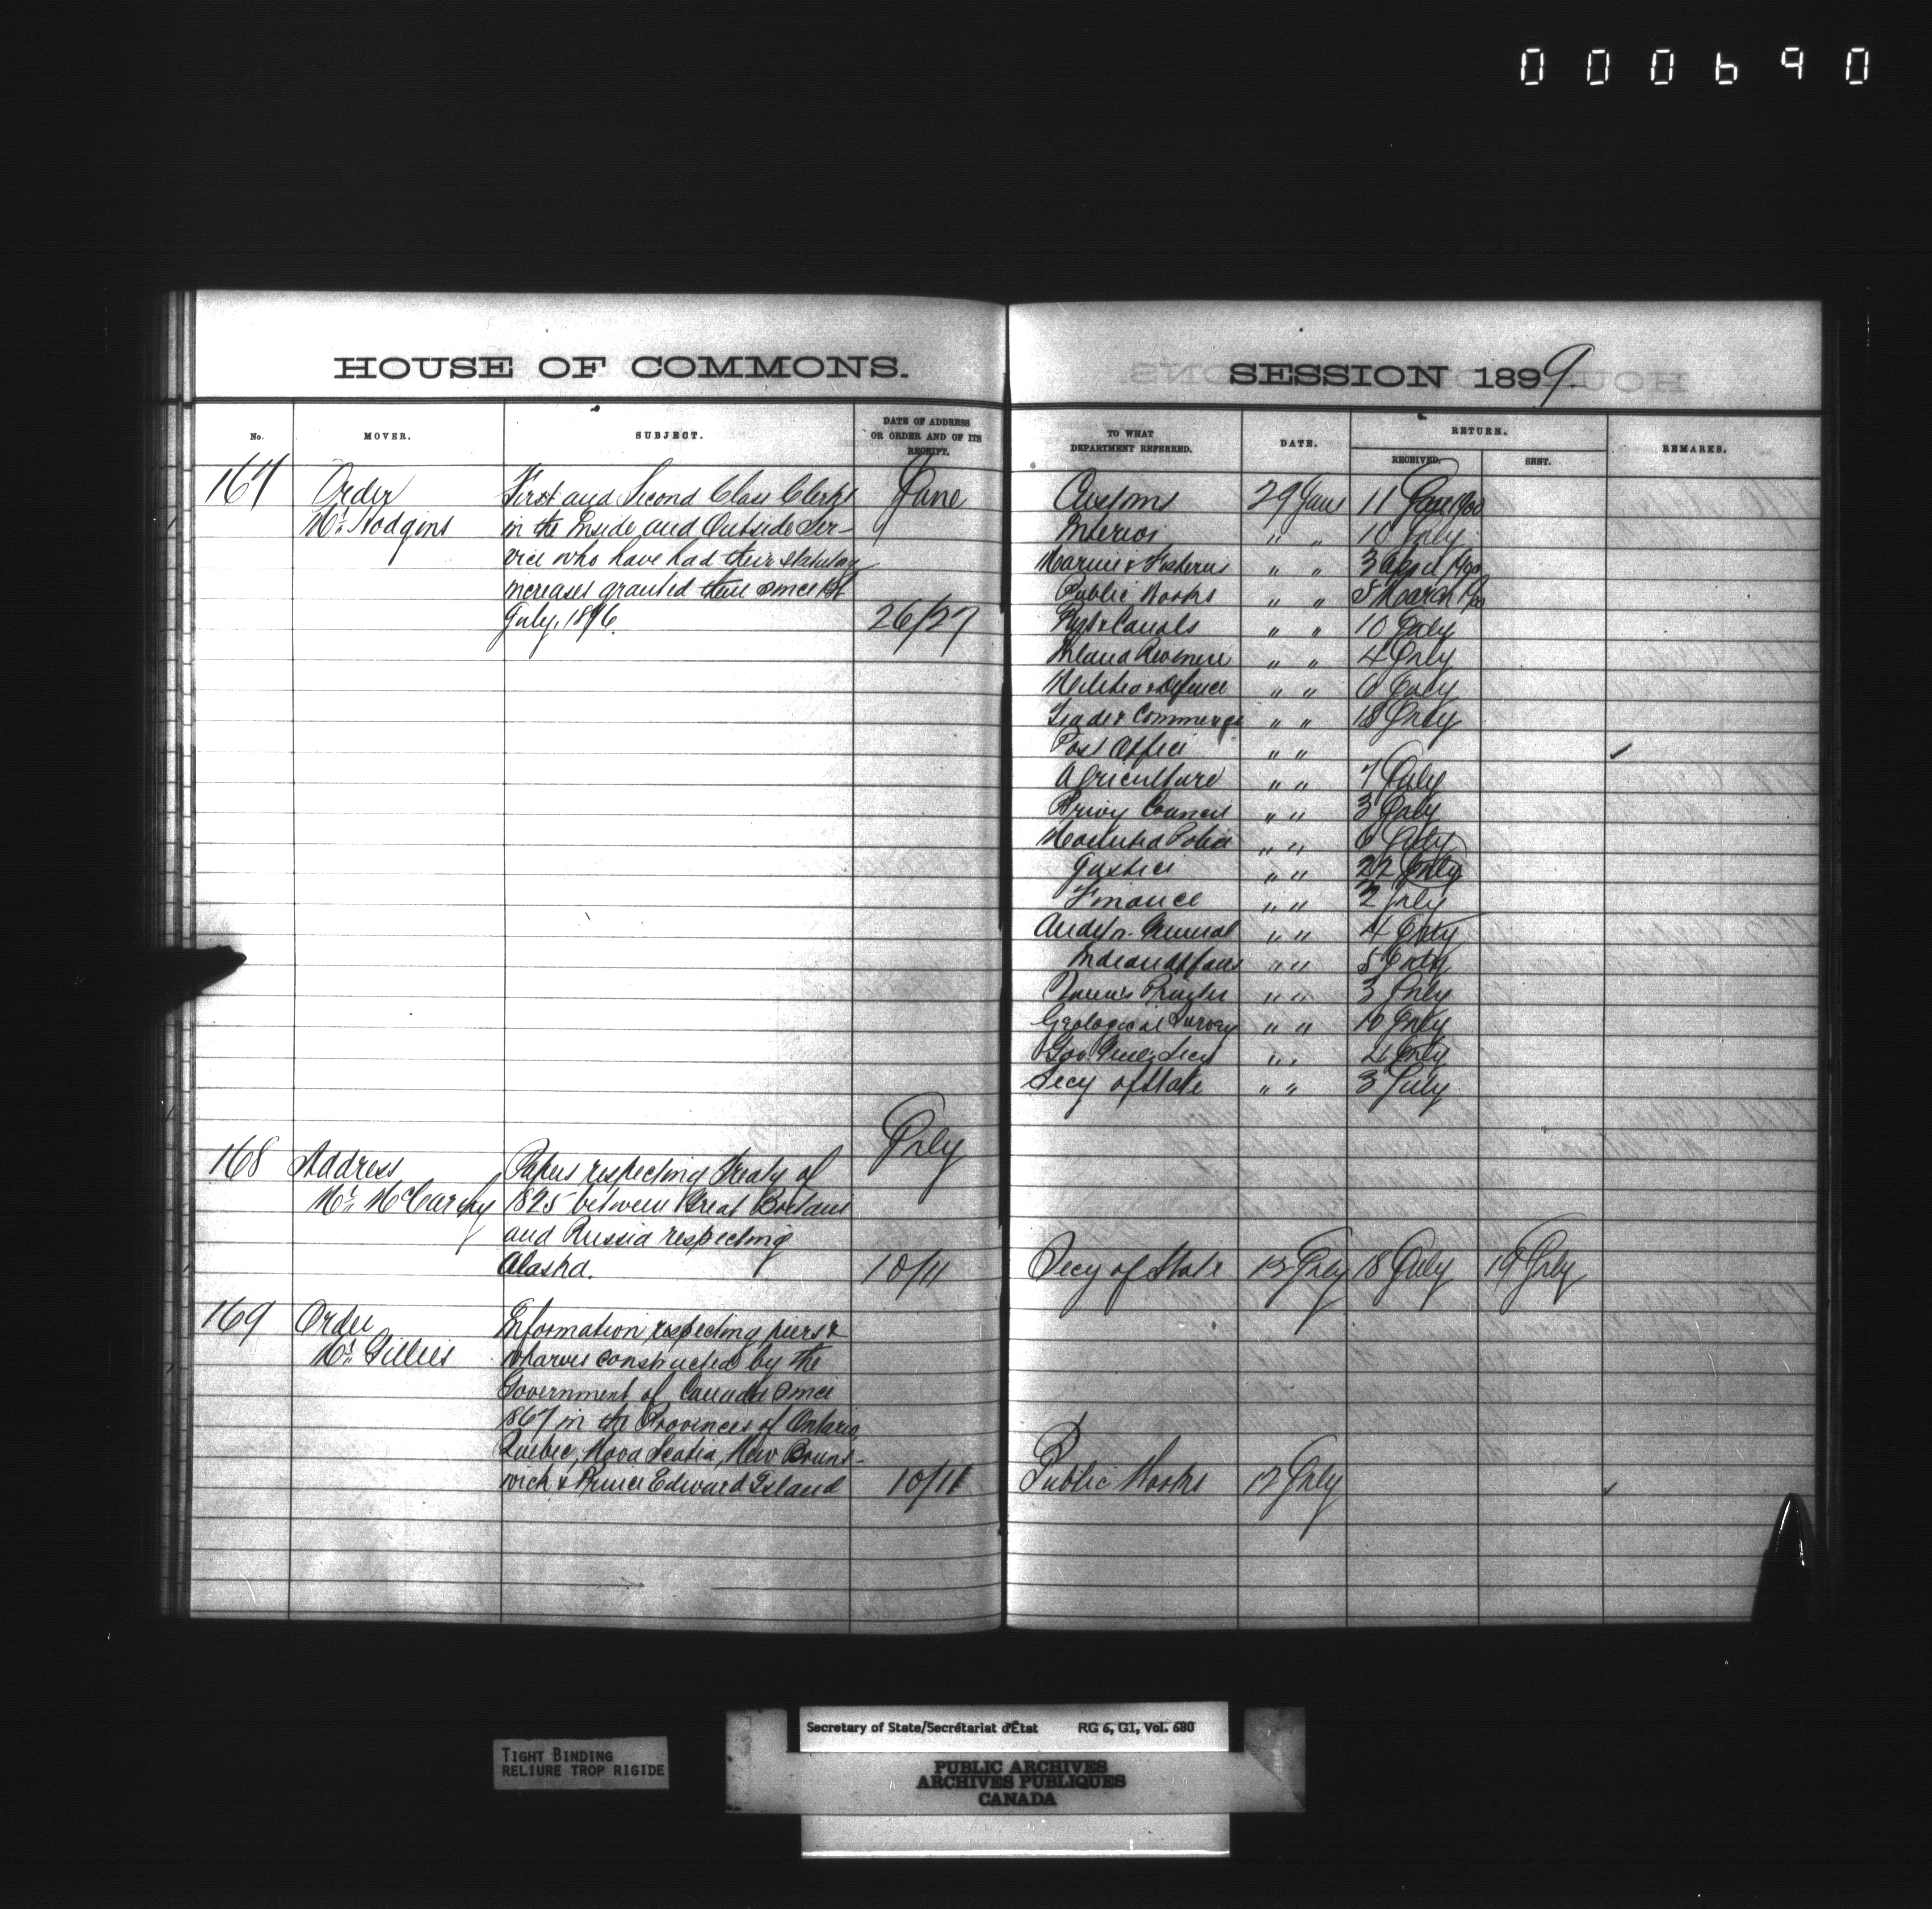 000690
HOUSE OF COMMONS.
No. MOVER. SUBJECT. DATE OF ADDRESS OR ORDER AND OF ITS RECEIPT.
167 Order First and Second Class Clerks June
Mr. Hodgins in the Inside and Outside Ser-
vice who have had their statutory
increases granted them since 1st
July, 1896. 26/27
July
168 Address Papers respecting Treaty of
Mr. McCarthy 1825 between Great Britain
and Russia respecting
Alaska. 10/11
169 Order Information respecting piers &
Mr. Gillies wharves constructed by the
Government of Canada since
1867 in the Provinces of Ontario,
Quebec, Nova Scotia, New Bruns-
wick & Prince Edward Island 10/11
SESSION 1899.
TO WHAT DEPARTMENT REFERRED. DATE. RETURN. RECEIVED. SENT. REMARKS.
Customs 29 June 11 1900
Interior " " 10 July
Marine & Fisheries " " 3 April 1900
Public Works " " 8 March 1900
Rys & Canals " " 10 July
Inland Revenue " " 4 July
Militia & Defence " " 6 July
Trade & Commerce " " 18 July
Post Office " "
Agriculture " " 7 July
Privy Council " " 3 July
Mounted Police " " 6 July
Justice " " 22 July
Finance " " July
Auditor General " " 4 July
Indian Affairs " " 5 July
Queen's Printer " " 3 July
Geological Survey " " 10 July
Gov. Genl. Secy " " 4 July
Secy of State " " 3 July
Secy of State July 18 July 19 July
Public Works 12 July
TIGHT BINDING
RELIURE TROP RIGIDE
Secretary of State/Secrétariat d'État RG 6, G1, Vol. 680
PUBLIC ARCHIVES
ARCHIVES PUBLIQUES
CANADA